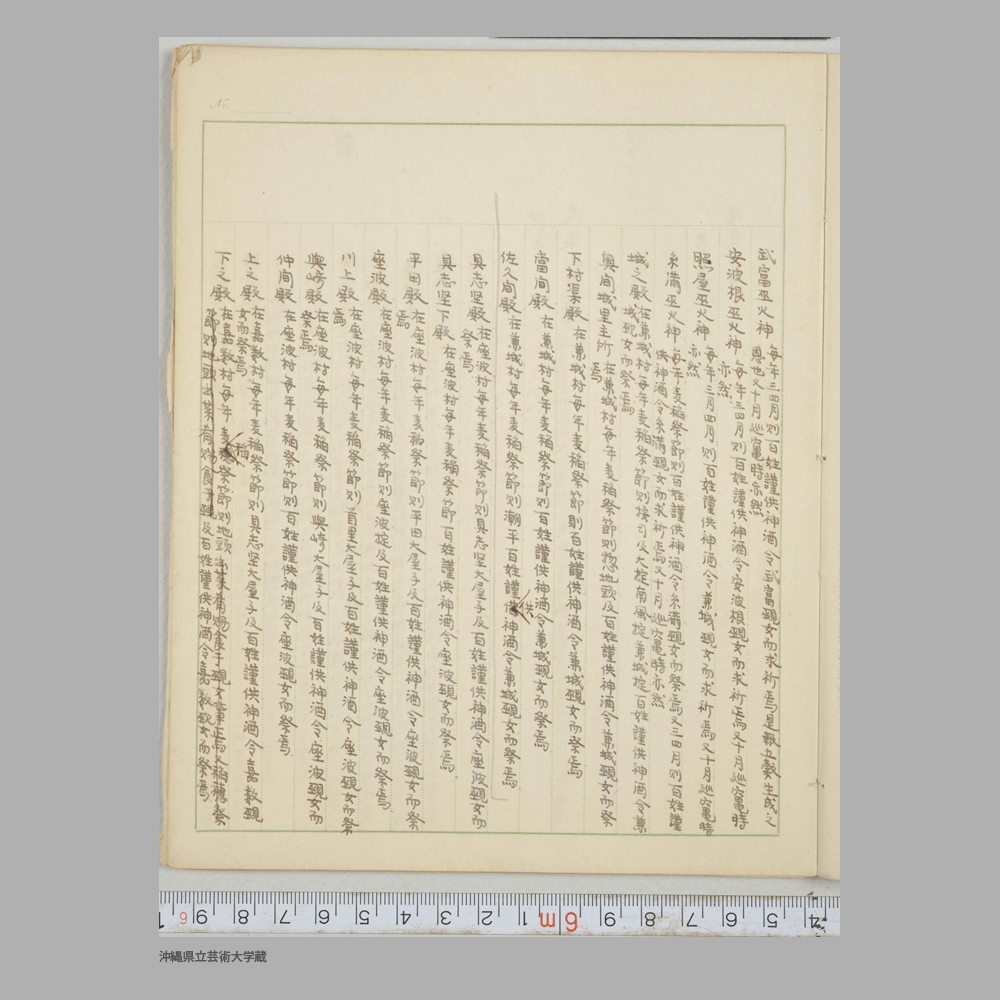 武富巫火神 毎年三四月則百姓謹供神酒令武富覡女而求祈焉是報五穀生成之
恩也又十月巡竃時亦然
安波根巫火神 毎年三四月則百姓謹供神酒令安波根覡女而求祈焉又十月巡竃時
亦然
照屋巫火神 毎年三月四月則百姓謹供神酒令兼城覡女而求祈焉又十月巡竃時
亦然
糸満巫火神 毎年麦稲祭節則百姓謹供神酒令糸満覡女而祭焉又三四月則百姓謹
供神酒令糸満覡女而求祈焉又十月巡竃時亦然
城之殿 在兼城村毎年麦稲祭節則按司及大掟南風掟兼城掟百姓謹供神酒令兼
城覡女而祭焉
奥間城里主所 在兼城村毎年麦稲祭節則惣地頭及百姓謹供神酒令兼城覡女而祭
焉
下村渠殿 在兼城村毎年麦稲祭節則百姓謹供神酒令兼城覡女而祭焉
當間殿 在兼城村毎年麦稲祭節則百姓謹供神酒令兼城覡女而祭焉
佐久間殿 在兼城村毎年麦稲祭節則潮平百姓謹供神酒令兼城覡女而祭焉
供
具志堅殿 在座波村毎年麦稲祭節則具志堅大屋子及百姓謹供神酒令座波覡女而
祭焉
具志堅下殿 在座波村毎年麦稲祭節百姓謹供神酒令座波覡女而祭焉
平田殿 在座波村毎年麦稲祭節則平田大屋子及百姓謹供神酒令座波覡女而祭
焉
座波殿 在座波村毎年麦稲祭節則座波掟及百姓謹供神酒令座波覡女而祭焉
川上殿 在座波村毎年麦稲祭節則首里大屋子及百姓謹供神酒令座波覡女而祭
焉
與崎殿 在座波村毎年麦稲祭節則與崎大屋子及百姓謹供神酒令座波覡女而
祭焉
仲間殿 在座波村毎年麦稲祭節則百姓謹供神酒令座波覡女而祭焉
上之殿 在嘉数村毎年麦稲祭節則具志堅大屋子及百姓謹供神酒令嘉数覡
女而祭焉
稲
下之殿 在嘉数村毎年麦祭節則地頭出菜肴賜食于覡女焉又稲祭
節則地頭出菜肴賜食于覡及百姓謹供神酒令嘉数覡女而祭焉
No.
沖縄県立芸術大学蔵